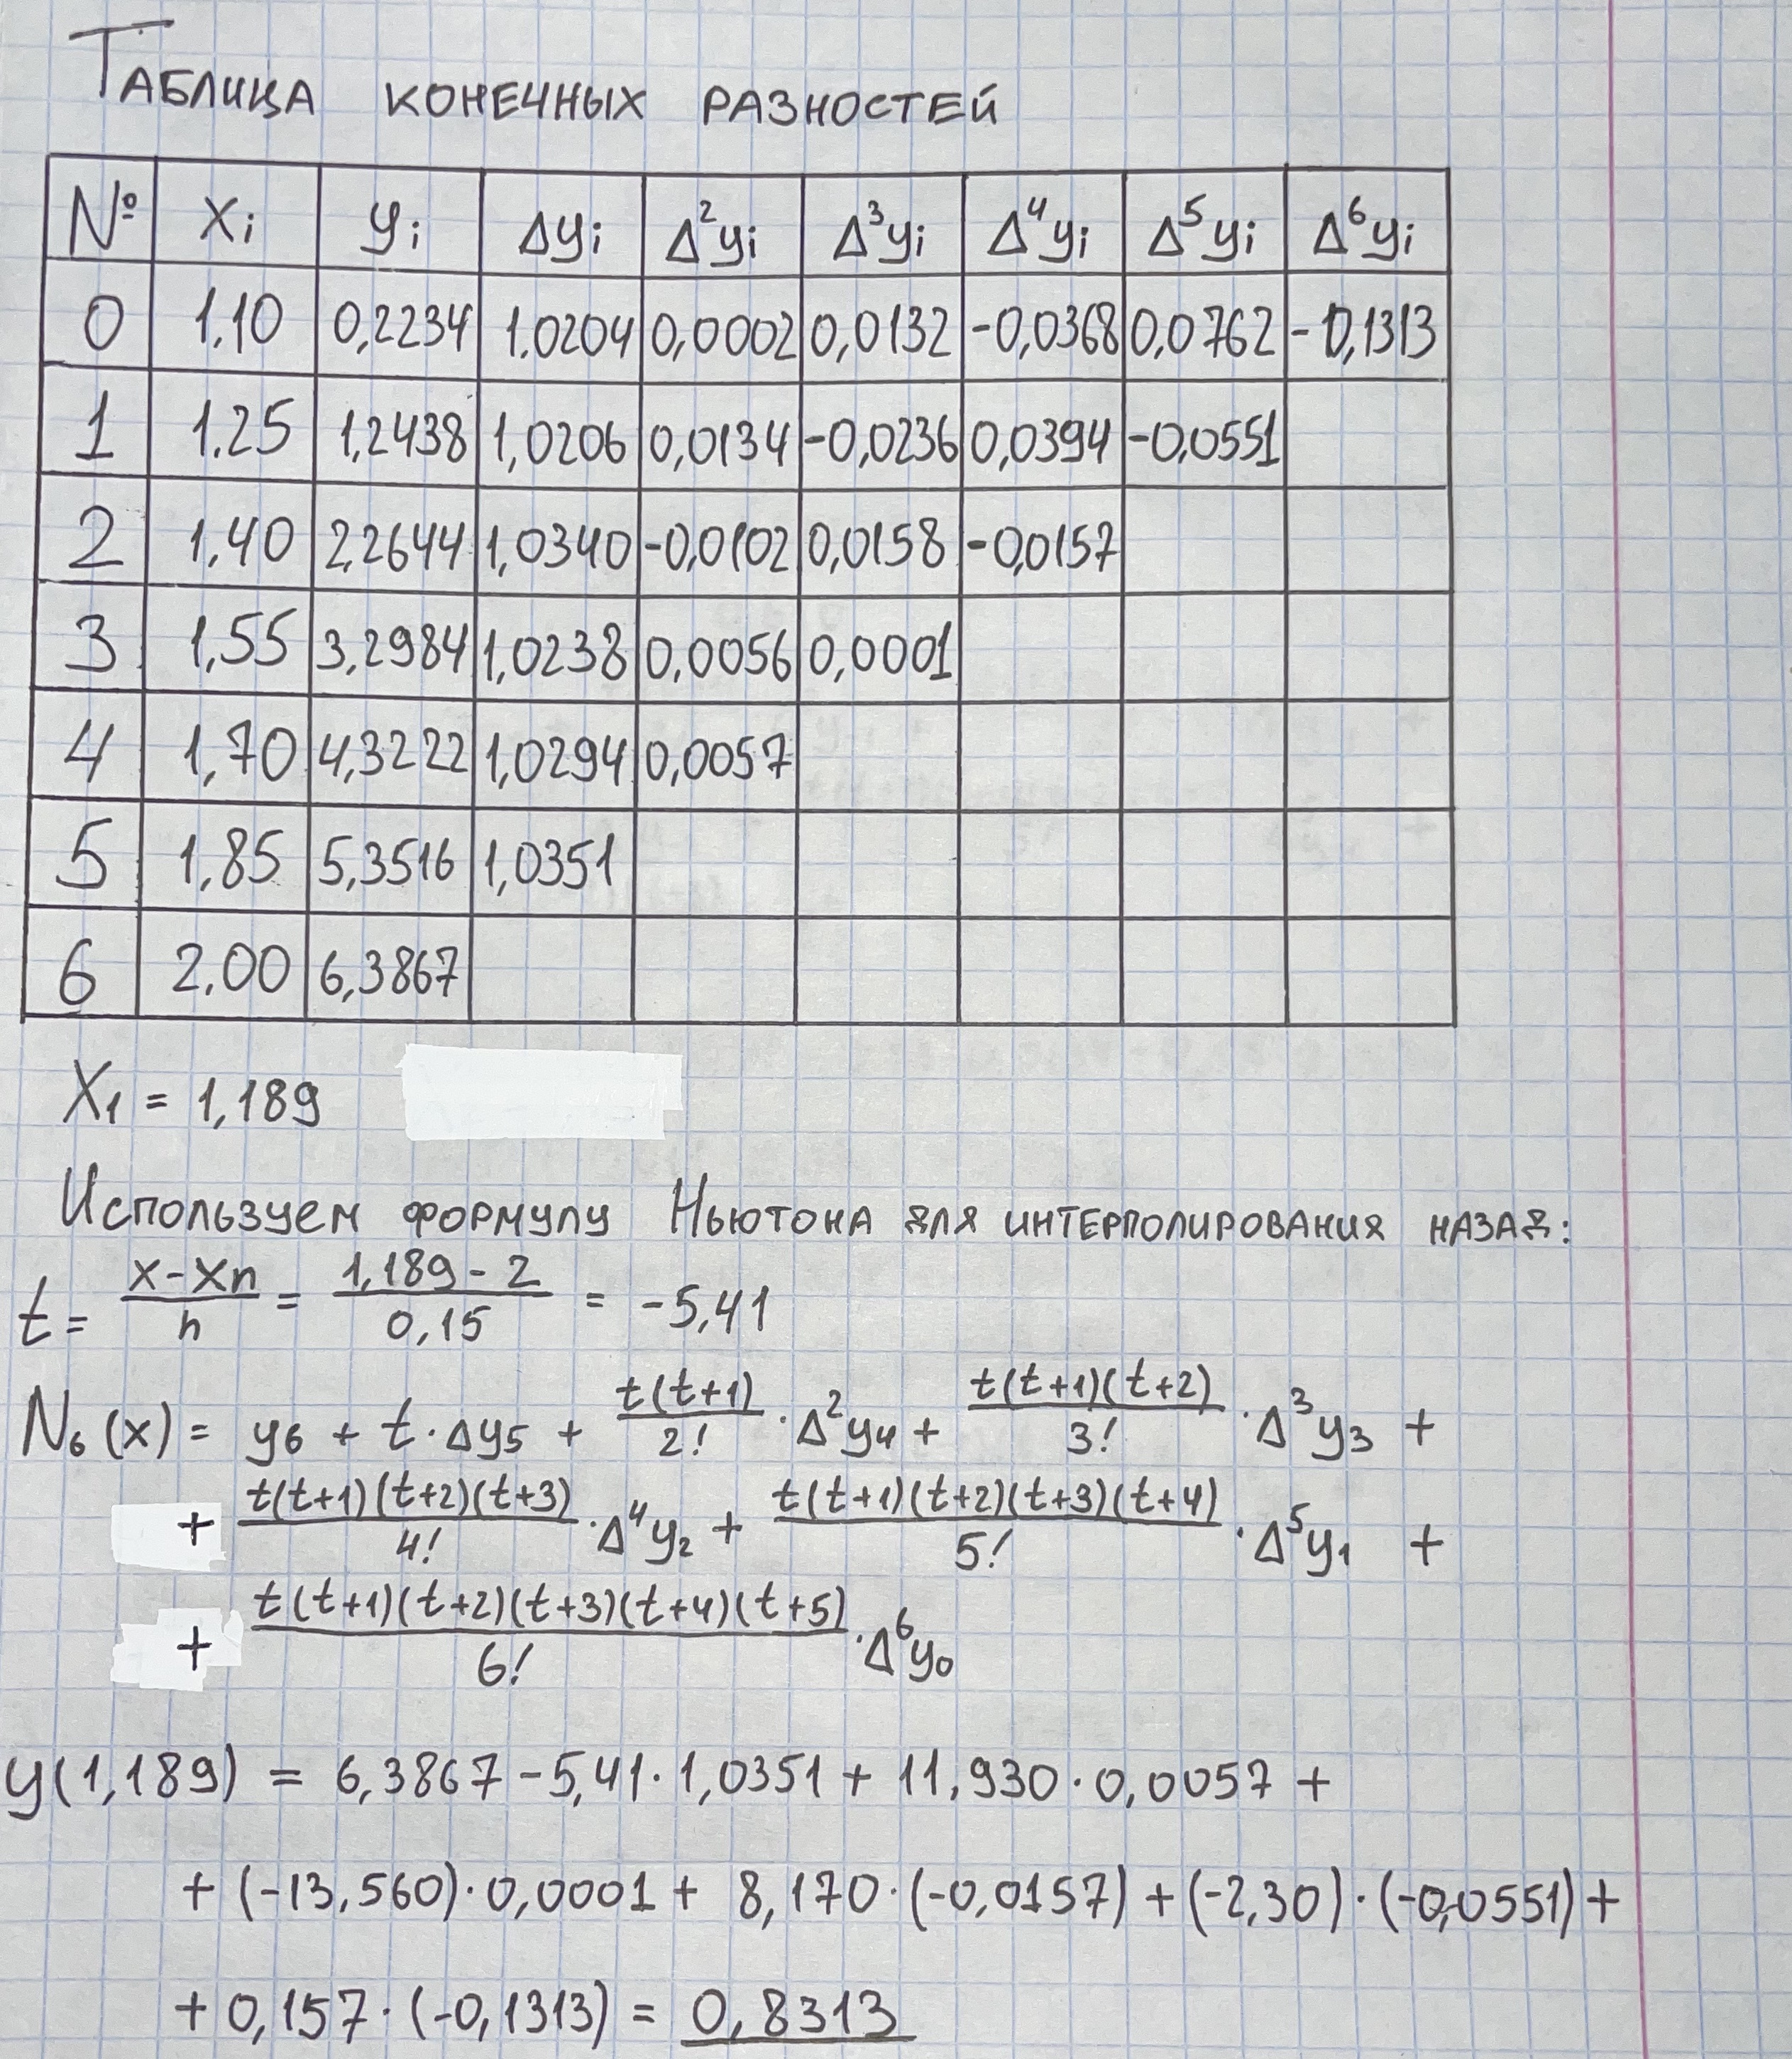 Таблица конечных разностей
№ xi yi Δyi Δ²yi Δ³yi Δ⁴yi Δ⁵yi Δ⁶yi
0 1,10 0,2234 1,0204 0,0002 0,0132 -0,0368 0,0762 -0,1313
1 1.25 1,2438 1,0206 0,0134 -0,0236 0,0394 -0,0551
2 1,40 2,2644 1,0340 -0,0102 0,0158 -0,0157
3 1,55 3,2984 1,0238 0,0056 0,0001
4 1,70 4,3222 1,0294 0,0057
5 1,85 5,3516 1,0351
6 2,00 6,3867
X₁ = 1,189
Используем формулу Ньютона для интерполирования назад:
t = (x-xn)/h = (1,189-2)/0,15 = -5,41
N₆(x) = y₆ + t·Δy₅ + t(t+1)/2!·Δ²y₄ + t(t+1)(t+2)/3!·Δ³y₃ +
+ t(t+1)(t+2)(t+3)/4!·Δ⁴y₂ + t(t+1)(t+2)(t+3)(t+4)/5!·Δ⁵y₁ +
+ t(t+1)(t+2)(t+3)(t+4)(t+5)/6!·Δ⁶y₀
y(1,189) = 6,3867 - 5,41·1,0351 + 11,930·0,0057 +
+ (-13,560)·0,0001 + 8,170·(-0,0157) + (-2,30)·(-0,0551) +
+ 0,157·(-0,1313) = 0,8313